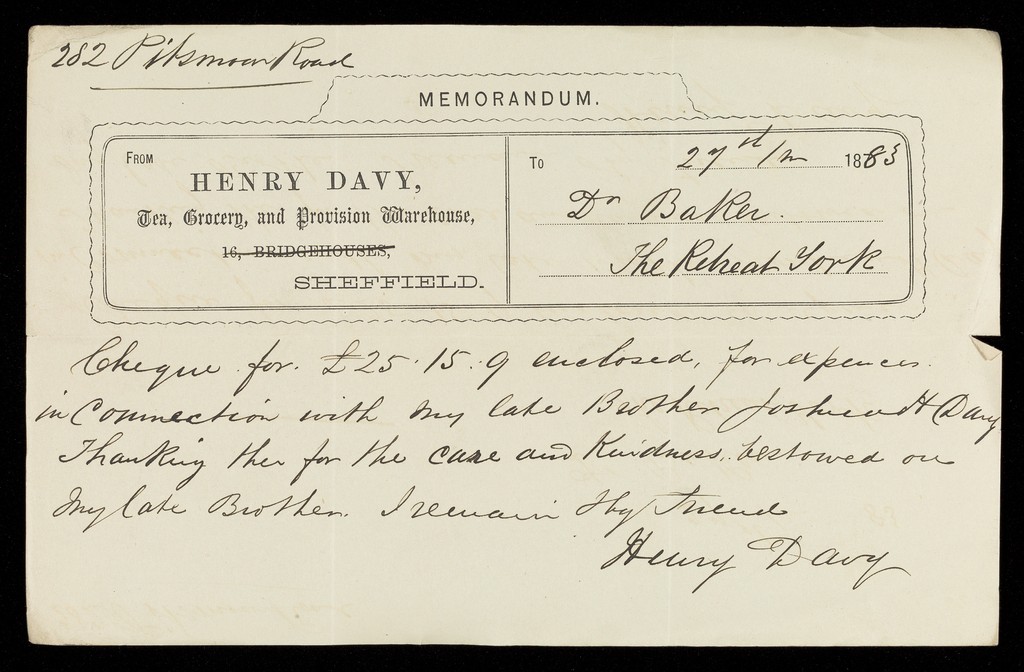 282 Pitsmoor Road
MEMORANDUM.
FROM
HENRY DAVY,
Tea, Grocery, and Provision Warehouse,
16, BRIDGEHOUSES,
SHEFFIELD.
To
27th /m 1883
Dr Baker.
The Retreat York
Cheque for £25.15.9 enclosed, for expences
in Connection with My late Brother Joshua H Davy
Thanking thee for the care and Kindness bestowed on
My late Brother. I remain thy Friend
Henry Davy